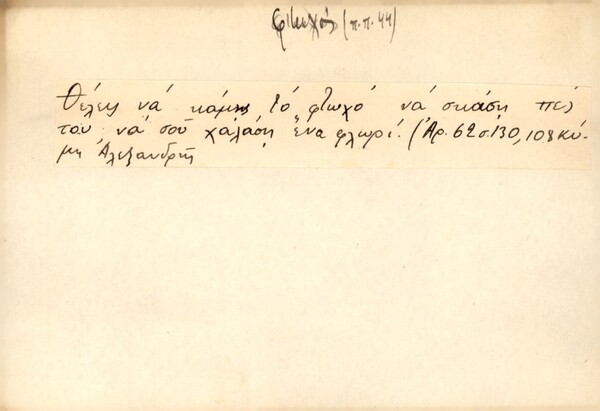 φτωχός (π.π. 44)
Θέλεις νά κάμης τό φτωχό νά σκάση πές
του νά σοῦ χαλάση ἕνα φλωρί. (Ἀρ. 62 σ. 130, 108 Κύ-
μη Ἀλεξανδρῆ